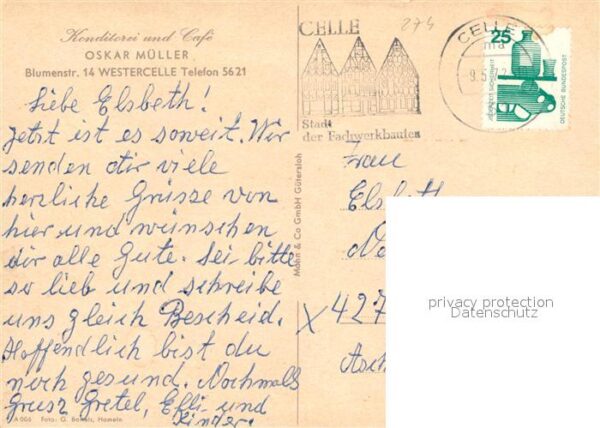 Konditorei und Café
OSKAR MÜLLER
Blumenstr. 14 WESTERCELLE Telefon 5621
Liebe Elsbeth!
Jetzt ist es soweit. Wir
senden dir viele
herzliche Grüsse von
hier und wünschen
dir alle Gute. Sei bitte
so lieb und schreibe
uns gleich Bescheid.
Hoffendlich bist du
noch gesund. Nochmals
Gruss Gretel, Effi und
Kinder.
A 006 Foto: G. Hameln
Mohn & Co GmbH Gütersloh
CELLE
Stadt
der Fachwerkbauten
274
CELLE
ma
9.5. 2
25
JEDERZEIT SICHERHEIT
DEUTSCHE BUNDESPOST
Frau
Elsbeth
X 427
privacy protection
Datenschutz